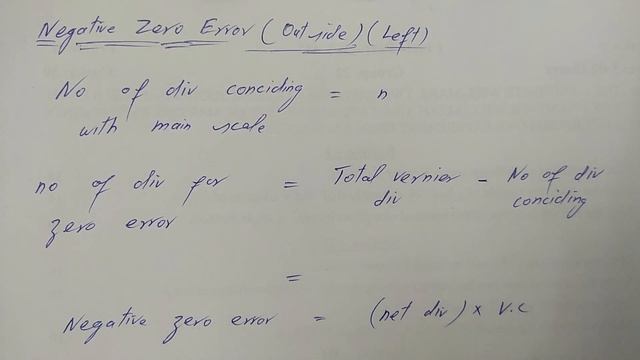 Negative Zero Error (Outside) (Left)
No of div conciding = n
with main scale
no of div for = Total vernier - No of div
zero error div conciding
=
Negative zero error = (net div) x V.C